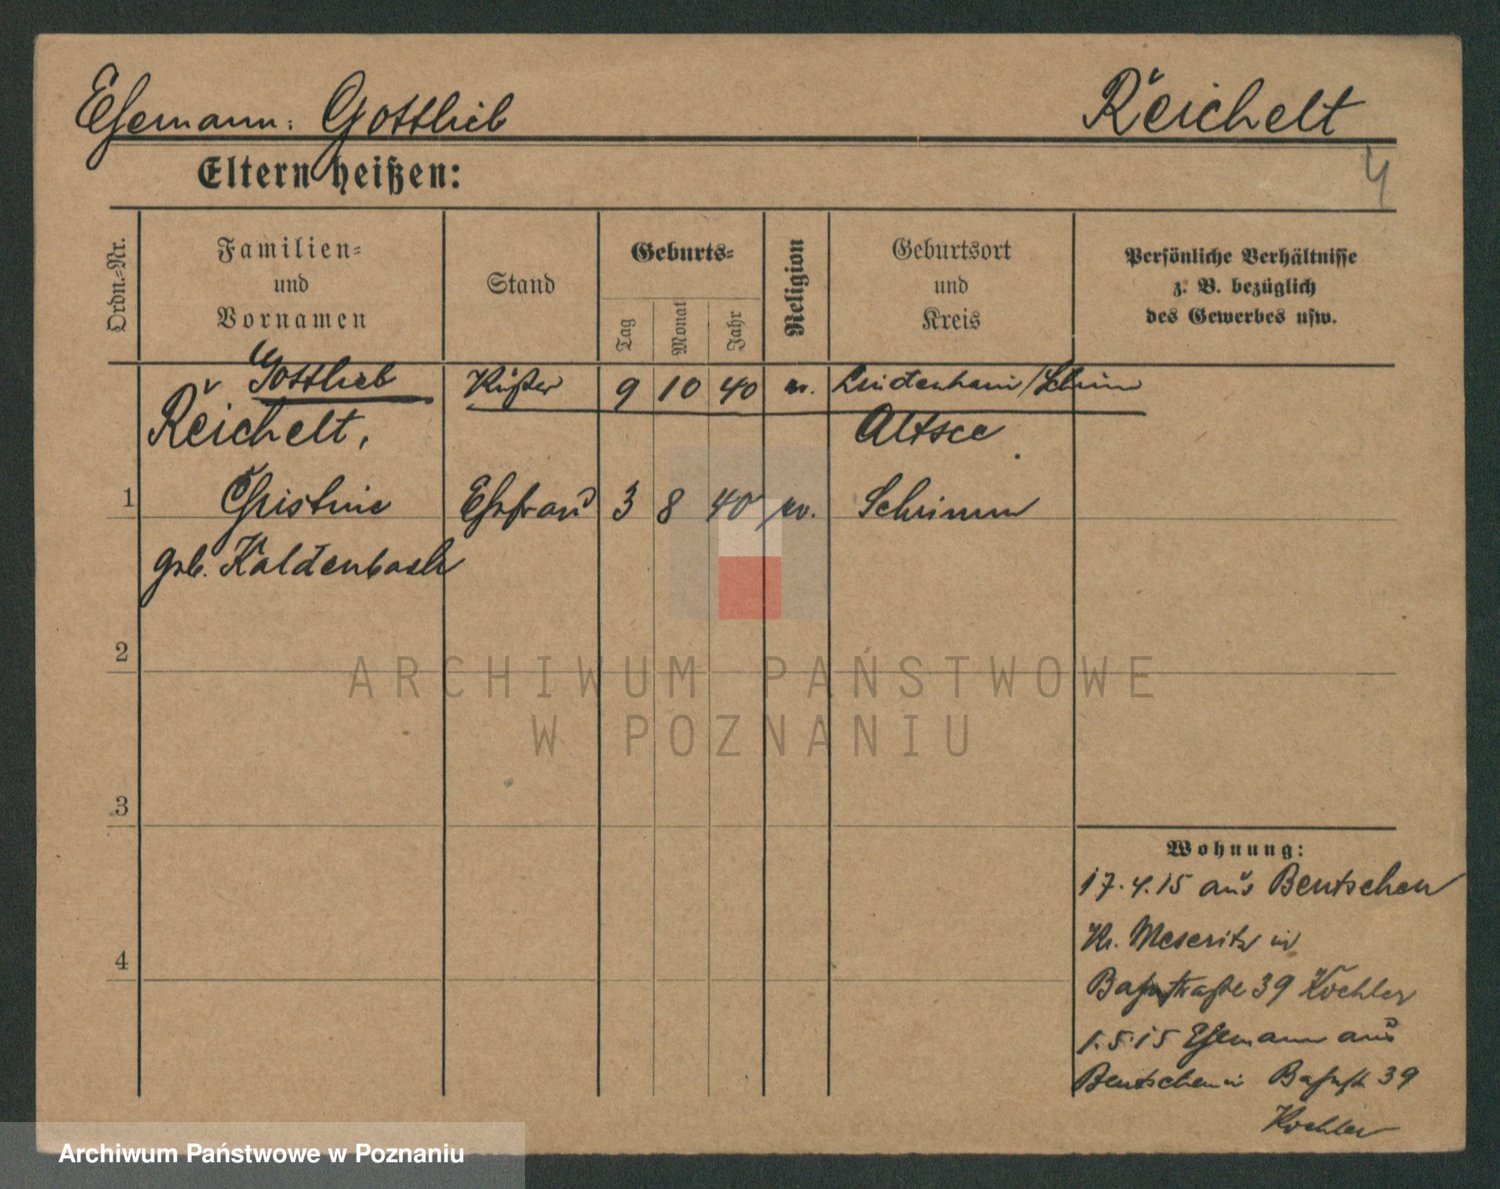 Ehemann: Gottlieb Reichelt
4
Eltern heißen:
Ordn.-Nr.
Familien-
und
Vornamen
Stand
Geburts-
Tag
Monat
Jahr
Religion
Geburtsort
und
Kreis
Persönliche Verhältnisse
z. B. bezüglich
des Gewerbes usw.
Gottlieb Küster 9 10 40 ev.
Reichelt, Altsee
1 Christine Ehefrau 3 8 40 ev. Schrimm
geb. Kaldenbach
2
3
4
Wohnung:
17.4.15 aus Bentschen
Kr. Meseritz in
Bahnstraße 39 Koehler
1.5.15 Ehemann aus
Bentschen in Bahnstr 39
Koehler
ARCHIWUM PAŃSTWOWE
W POZNANIU
Archiwum Państwowe w Poznaniu